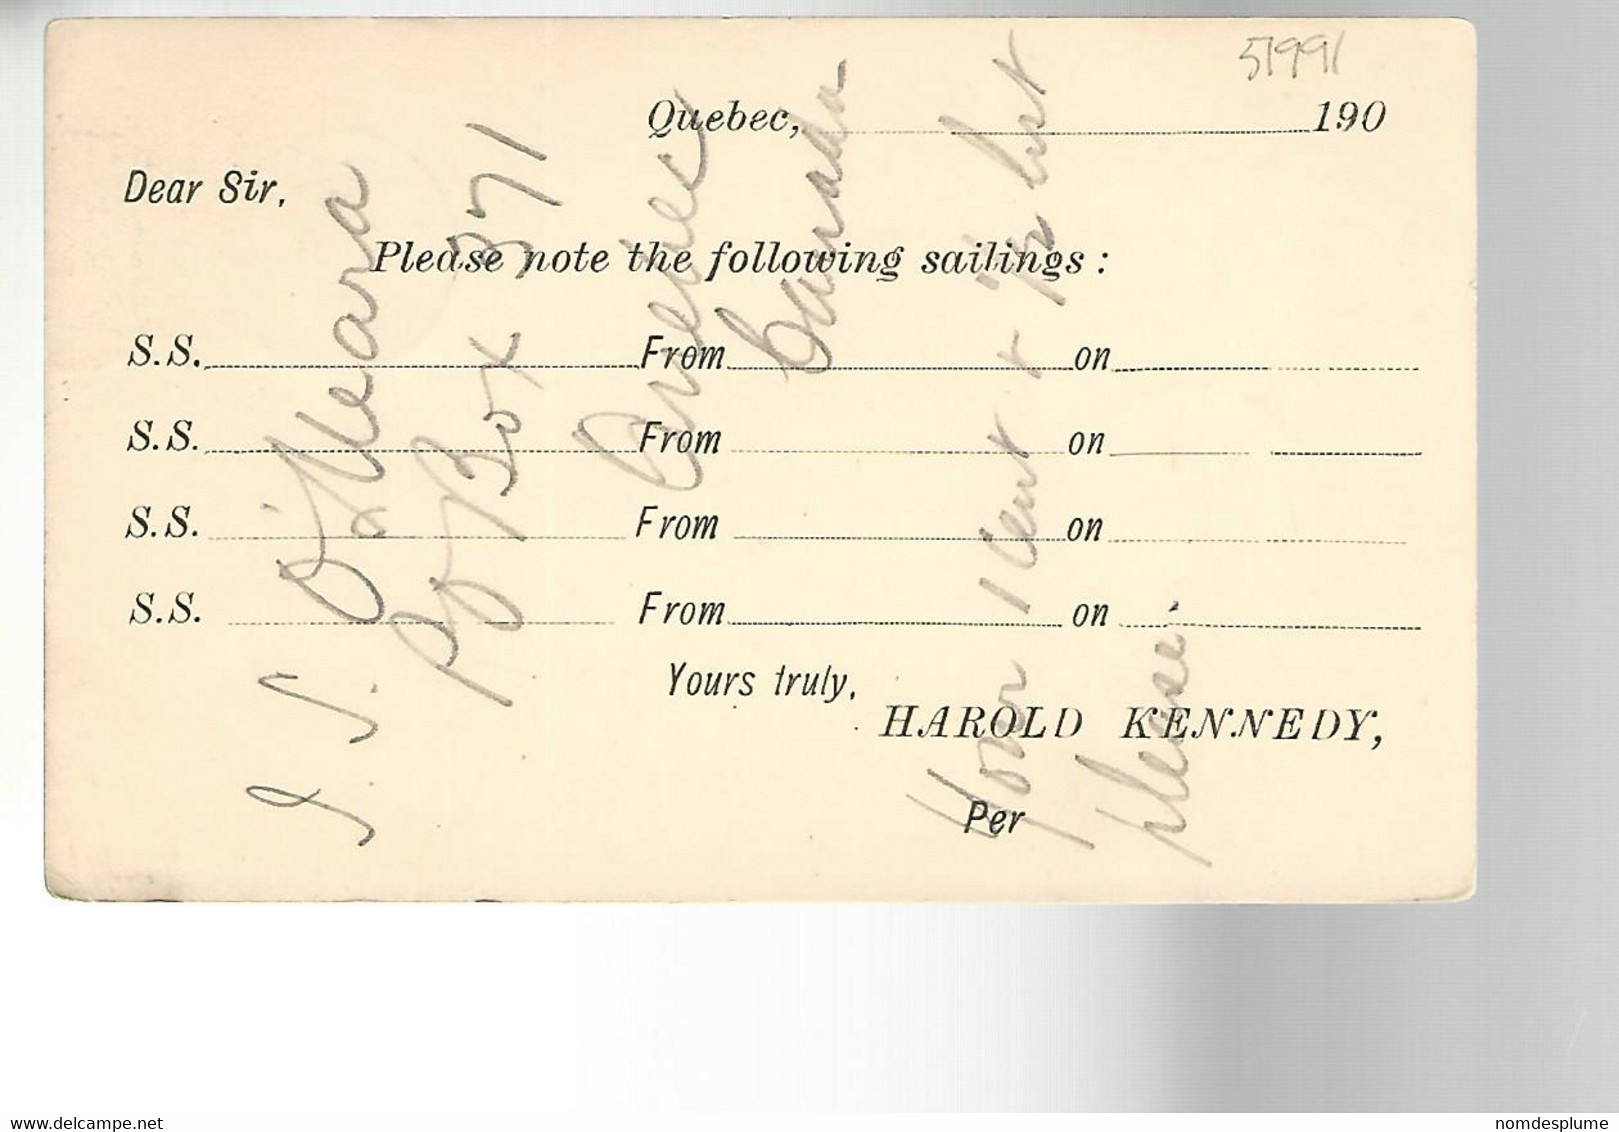 51991
Quebec, 190
Dear Sir,
Please note the following sailings :
S.S. From on
S.S. From on
S.S. From on
S.S. From on
Yours truly,
HAROLD KENNEDY,
Per
J. S. O'Meara
PO Box 371
Quebec
Canada
1 Cent + ½ List
please
delcampe.net
nomdesplume